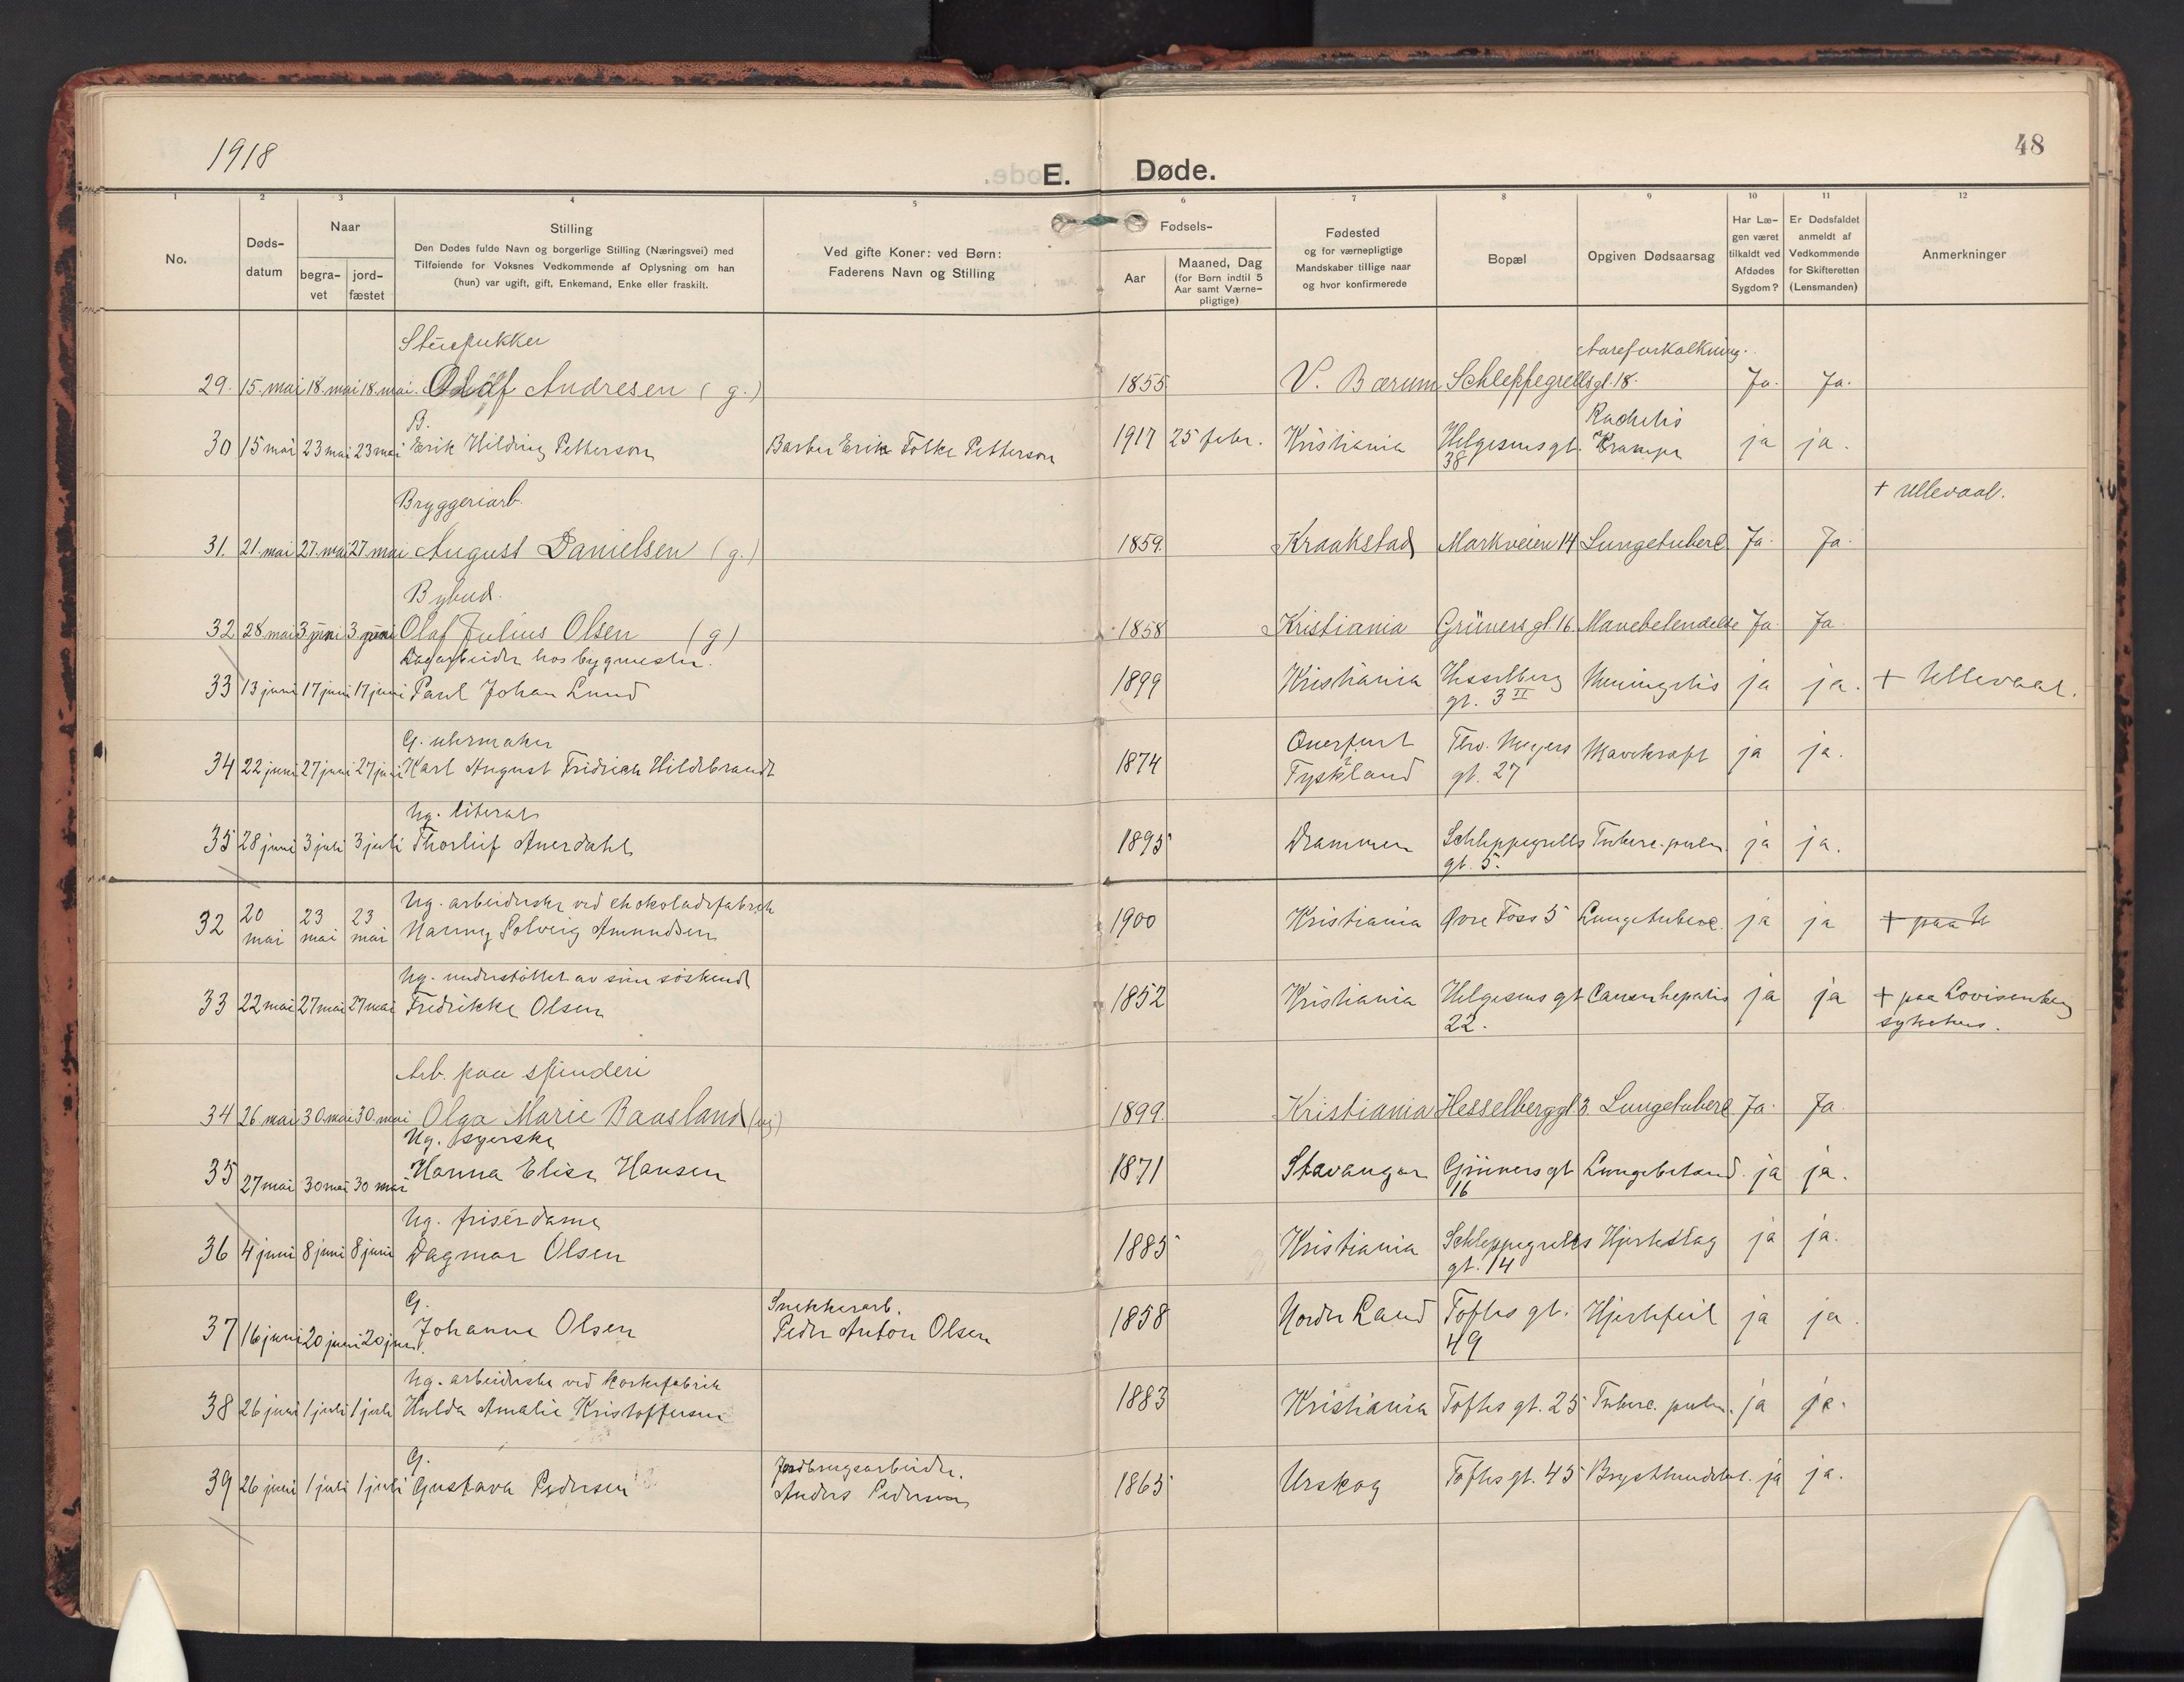 1918
48
E. Døde.
1 2 3 4 5 6 7 8 9 10 11 12
No.
Døds-
datum
Naar
begra-
vet
jord-
fæstet
Stilling
Den Dødes fulde Navn og borgerlige Stilling (Næringsvei) med
Tilføiende for Voksnes Vedkommende af Oplysning om han
(hun) var ugift, gift, Enkemand, Enke eller fraskilt.
Ved gifte Koner: ved Børn:
Faderens Navn og Stilling
Fødsels-
Aar
Maaned, Dag
(for Børn indtil 5
Aar samt Værne-
pligtige)
Fødested
og for værnepligtige
Mandskaber tillige naar
og hvor konfirmerede
Bopæl
Opgiven Dødsaarsag
Har Læ-
gen været
tilkaldt ved
Afdødes
Sygdom?
Er Dødsfaldet
anmeldt af
Vedkommende
for Skifteretten
(Lensmanden)
Anmerkninger
Aareforkalkning.
29. 15. mai 18. mai 18. mai. Olaf Andresen (g.) 1855 V. Bærum Schleppegrellsgt. 18. Ja. Ja.
B. Rachitis
30 15 mai 23 mai 23 mai Erik Hilding Petterson Barber Erik Folke Petterson 1917 25 febr. Kristiania Helgesens gt. Krampe ja ja.
38
Bryggeriarb. + Ullevaal.
31. 21. mai 27. mai 27. mai August Danielsen (g.) 1859. Kraakstad Markveien 14 Lungetuberc. Ja. Ja.
Bybud.
32 28. mai 3 juni 3. juni Olaf Julius Olsen (g) 1858 Kristiania Grüners gt. 16. Mavebetendelse Ja. Ja.
Lagarbeider hos bygmester.
33 13 juni 17 juni 17 juni Paul Johan Lund 1899 Kristiania Hesselberg Meningitis ja ja. + Ullevaal.
gt. 3 II
G. uhrmaker Querfurt Thv. Meyers
34 22 juni 27 juni 27 juni Karl August Fridrich Hildebrandt 1874 Tyskland gt. 27 Mavekræft ja ja.
Ug. literat
35 28 juni 3 juli 3 juli Thorleif Auerdahl 1895 Drammen Schleppegrells Tuberc. pulm. ja ja.
gt. 5.
Ug. arbeiderske ved chokoladefabrik
32 20 mai 23 mai 23 mai Nanny Solveig Amundsen 1900 Kristiania Øvre Foss 5 Lungetuberc. ja ja + paa U
Ug. understøttet av sine søskend
33 22 mai 27 mai 27 mai Fredrikke Olsen 1852 Kristiania Helgesens gt Cancer hepatis ja ja + paa Lovisenberg
22. sykehus.
Arb. paa spinderi
34 26 mai 30. mai 30. mai Olga Marie Baasland (ug) 1899. Kristiania Hesselberggt. 3 Lungetuberc. Ja. Ja
Ug. syerske
35 27 mai 30 mai 30 mai Hanna Elise Hansen 1871 Stavanger Grüners gt Lungebetænd. ja ja.
16
Ug. frisérdame
36 4 juni 8 juni 8 juni Dagmar Olsen 1885 Kristiania Schleppegrells Hjerteslag ja ja.
gt. 14
G. Snekkerarb.
37 16 juni 20 juni 20 juni Johanne Olsen Peder Anton Olsen 1858 Nordre Land Toftes gt. Hjertefeil ja ja.
49
Ug. arbeiderske ved korkefabrik
38 26 juni 1 juli 1 juli Hulda Amalie Kristoffersen 1883 Kristiania Toftes gt. 25 Tuberc. pulm. ja ja.
G. Jordbrugsarbeider.
39 26 juni 1 juli 1 juli Gustava Pedersen Anders Pedersen 1865 Urskog Toftes gt. 45 ja ja.